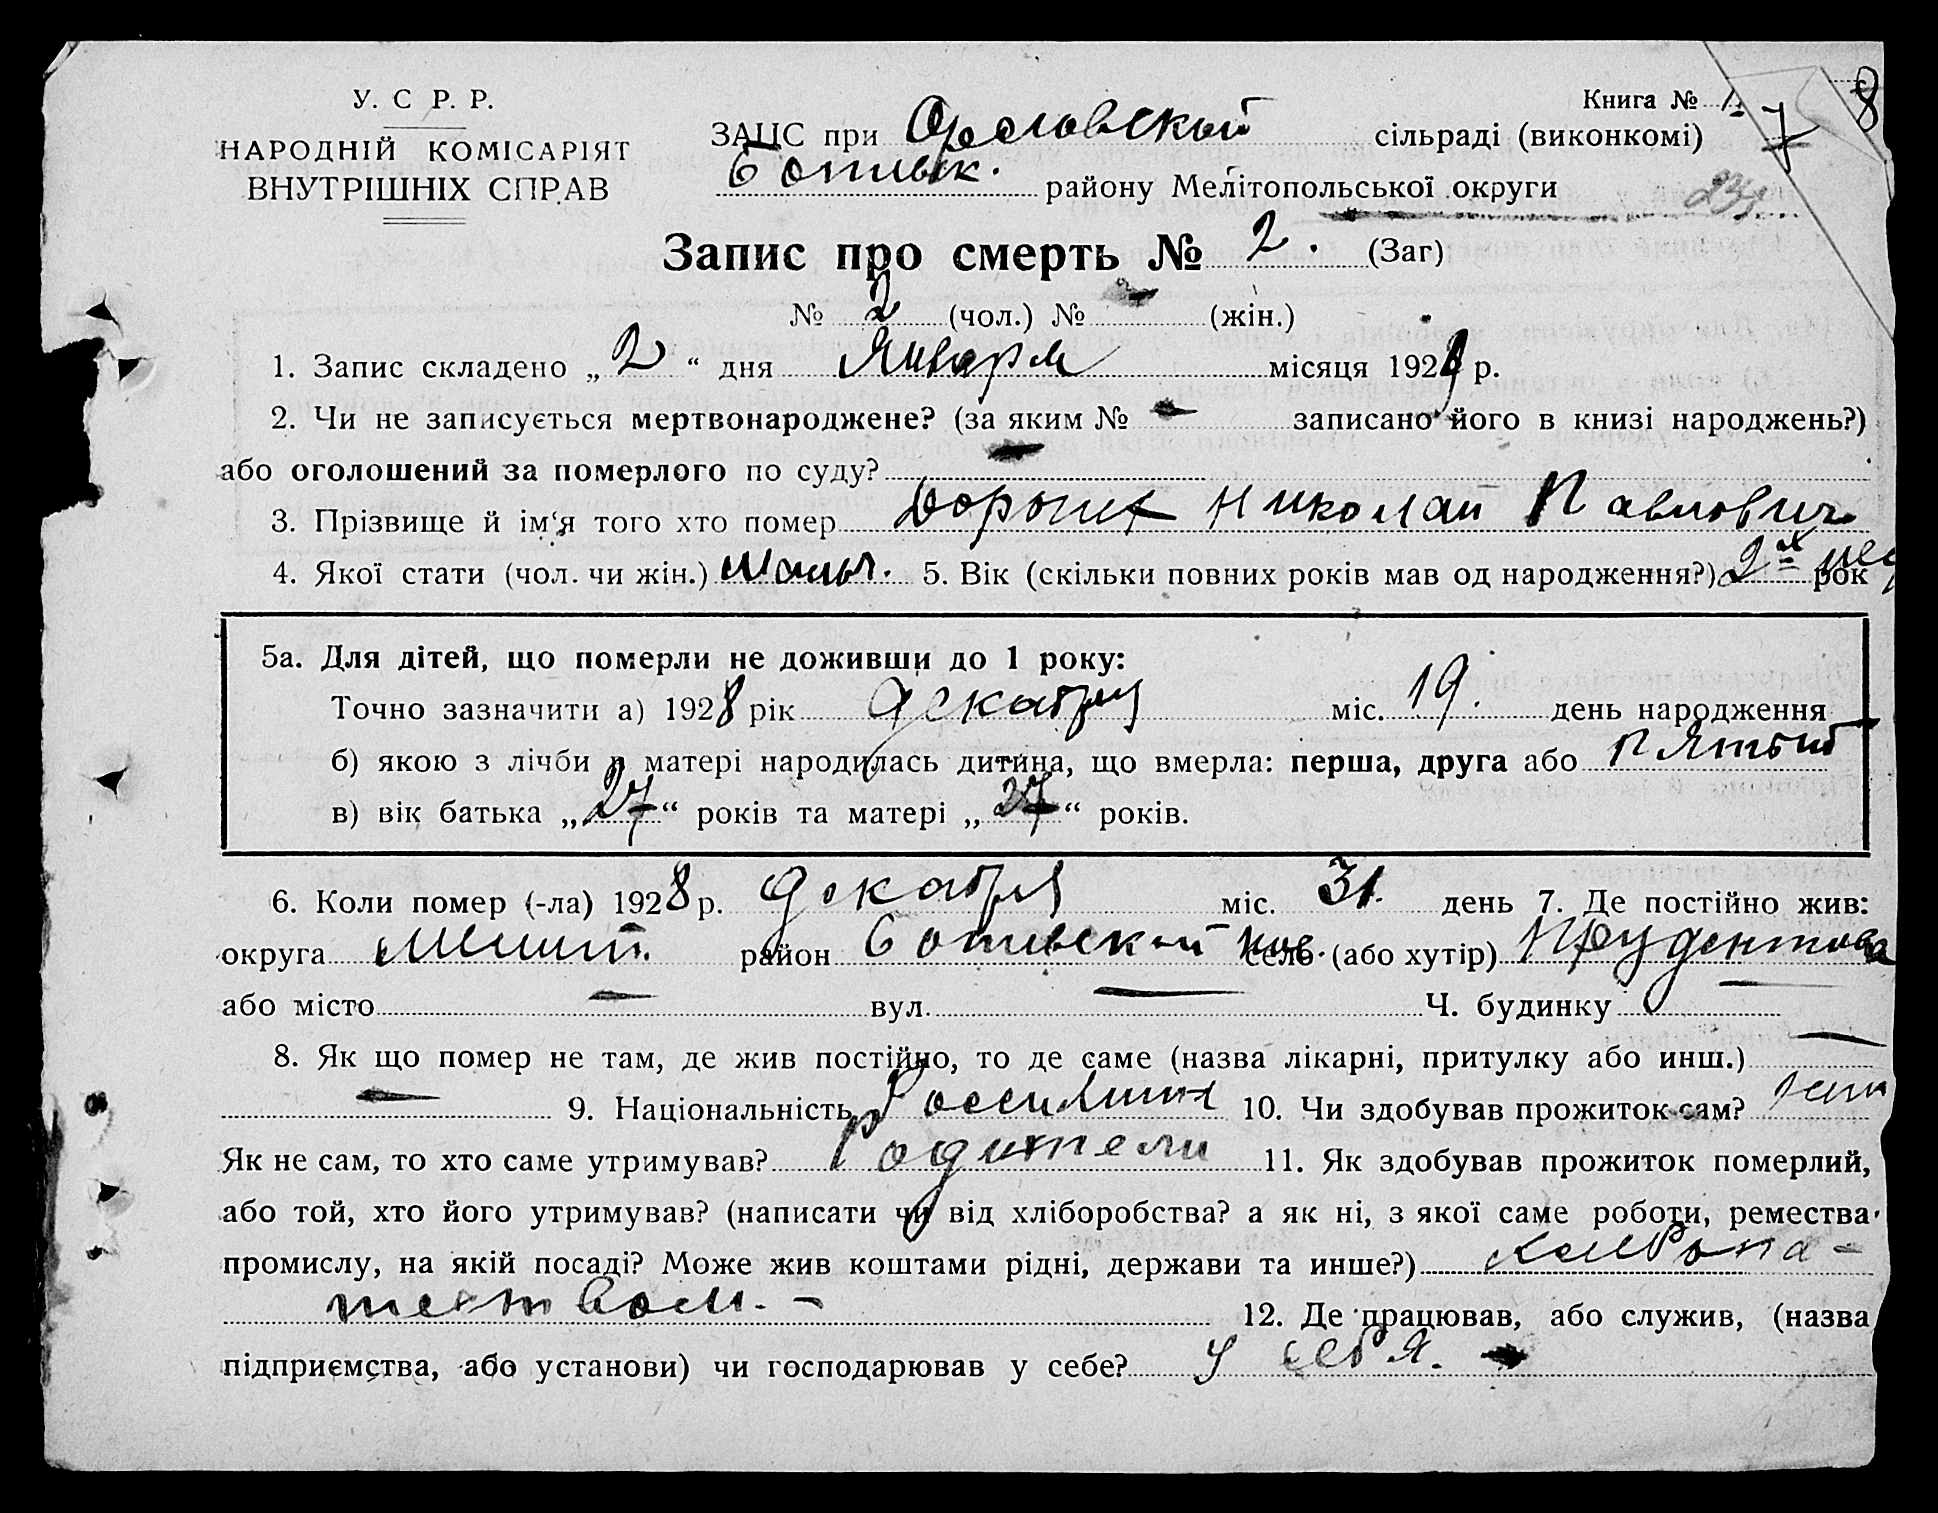 У. С Р. Р.
НАРОДНІЙ КОМІСАРІЯТ
ВНУТРІШНІХ СПРАВ
Книга № 1 7 8
ЗАЦС при Орловской сільраді (виконкомі)
району Мелітопольської округи
Запис про смерть № 2. (Заг)
№ 2 (чол.) № (жін.)
1. Запис складено „2“ дня Января місяця 1929 р.
2. Чи не записується мертвонароджене? (за яким № — записано його в книзі народжень?)
або оголошений за померлого по суду? —
3. Прізвище й ім‘я того хто помер Николай Павлович
4. Якої стати (чол. чи жін.) 5. Вік (скільки повних років мав од народження?) 2х нед рок
5а. Для дітей, що померли не доживши до 1 року:
Точно зазначити а) 1928 рік декабря міс. 19. день народження
б) якою з лічби у матері народилась дитина, що вмерла: перша, друга або пятый
в) вік батька „27“ років та матері „27“ років.
6. Коли помер (-ла) 1928 р. декабря міс. 31. день 7. Де постійно жив:
округа Мелит. район Ботиевский село (або хутір)
або місто — вул. — Ч. будинку
8. Як що помер не там, де жив постійно, то де саме (назва лікарні, притулку або инш.) —
— 9. Національність 10. Чи здобував прожиток сам? нет
Як не сам, то хто саме утримував? Родители 11. Як здобував прожиток померлий,
або той, хто його утримував? (написати чи від хліборобства? а як ні, з якої саме роботи, ремества
промислу, на якій посаді? Може жив коштами рідні, держави та инше?) хлебопа-
шеством. –
12. Де працював, або служив, (назва
підприємства, або установи) чи господарював у себе? у себя. –